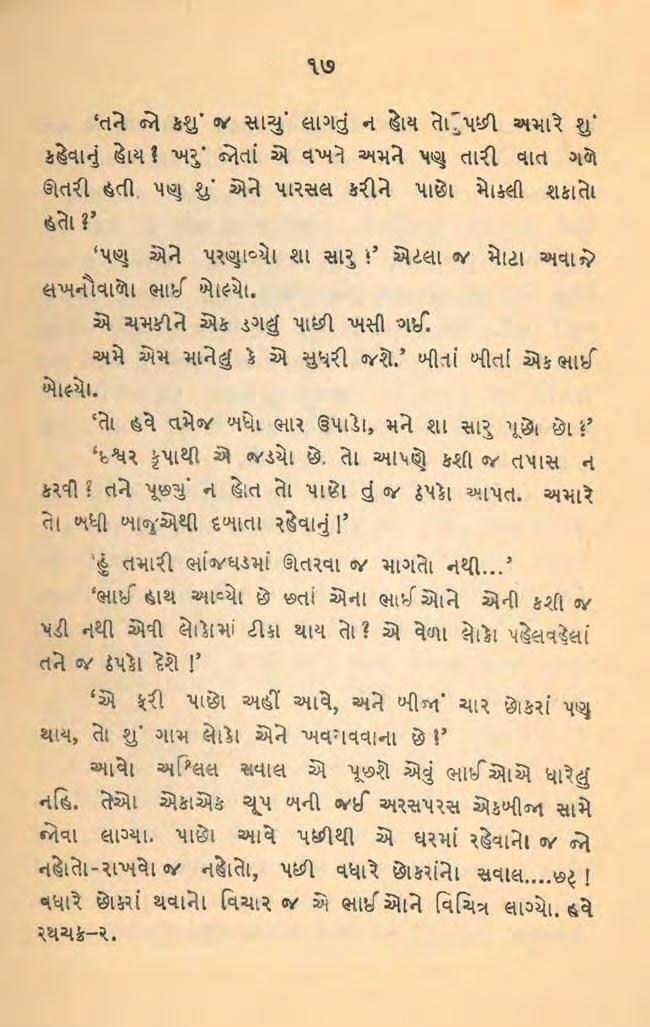 ૧૭
‘તને જો કશું જ સાચું લાગતું ન હોય તો પછી અમારે શું
કહેવાનું હોય? ખરું જોતાં એ વખતે અમને પણ તારી વાત ગળે
ઊતરી હતી. પણ શું એને પારસલ કરીને પાછો મોકલી શકાતો
હતો?’
‘પણ એને પરણાવ્યો શા સારુ?’ એટલા જ મોટા અવાજે
લખનૌવાળો ભાઈ બોલ્યો.
એ ચમકીને એક ડગલું પાછી ખસી ગઈ.
અમે એમ માનેલું કે એ સુધરી જશે.’ બીતાં બીતાં એક ભાઈ
બોલ્યો.
‘તો હવે તમેજ બધો ભાર ઉપાડો, મને શા સારુ પૂછો છો?’
‘ઇશ્વર કૃપાથી એ જડયો છે. તો આપણે કશી જ તપાસ ન
કરવી? તને પૂછ્યું ન હોત તો પાછો તું જ ઠપકો આપત. અમારે
તો બધી બાજુએથી દબાતા રહેવાનું!’
‘હું તમારી ભાંજઘડમાં ઊતરવા જ માગતો નથી...’
‘ભાઈ હાથ આવ્યો છે છતાં એના ભાઈઓને એની કશી જ
પડી નથી એવી લોકોમાં ટીકા થાય તો? એ વેળા લોકો પહેલવહેલાં
તને જ ઠપકો દેશે!’
‘એ ફરી પાછો અહીં આવે, અને બીજાં ચાર છોકરાં પણ
થાય, તો શું ગામ લોકો એને ખવરાવવાના છે?’
આવો અશ્લિલ સવાલ એ પૂછશે એવું ભાઈઓએ ધારેલું
નહિ. તેઓ એકાએક ચૂપ બની જઈ અરસપરસ એકબીજા સામે
જોવા લાગ્યા. પાછો આવે પછીથી એ ઘરમાં રહેવાનો જ જો
નહોતો-રાખવો જ નહોતો, પછી વધારે છોકરાંનો સવાલ....છટ્!
વધારે છોકરાં થવાનો વિચાર જ એ ભાઈઓને વિચિત્ર લાગ્યો. હવે
રથચક્ર–૨.